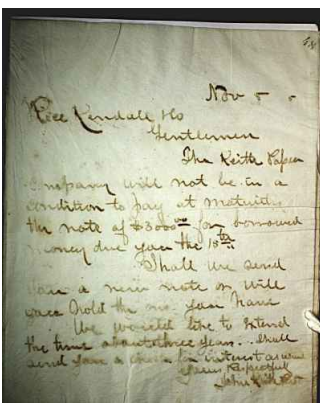 Nov 5 5
Rice Kendall Co
Gentlemen
The Keith Paper
Company will not be in a
condition to pay at maturity
the note of $3000 00 for borrowed
money due you the 15th.
Shall we send
you a new note or will
you hold the one you have
We would like to extend
the time about three years. Shall
send you a check for interest as usual
Yours respectfully
John Keith